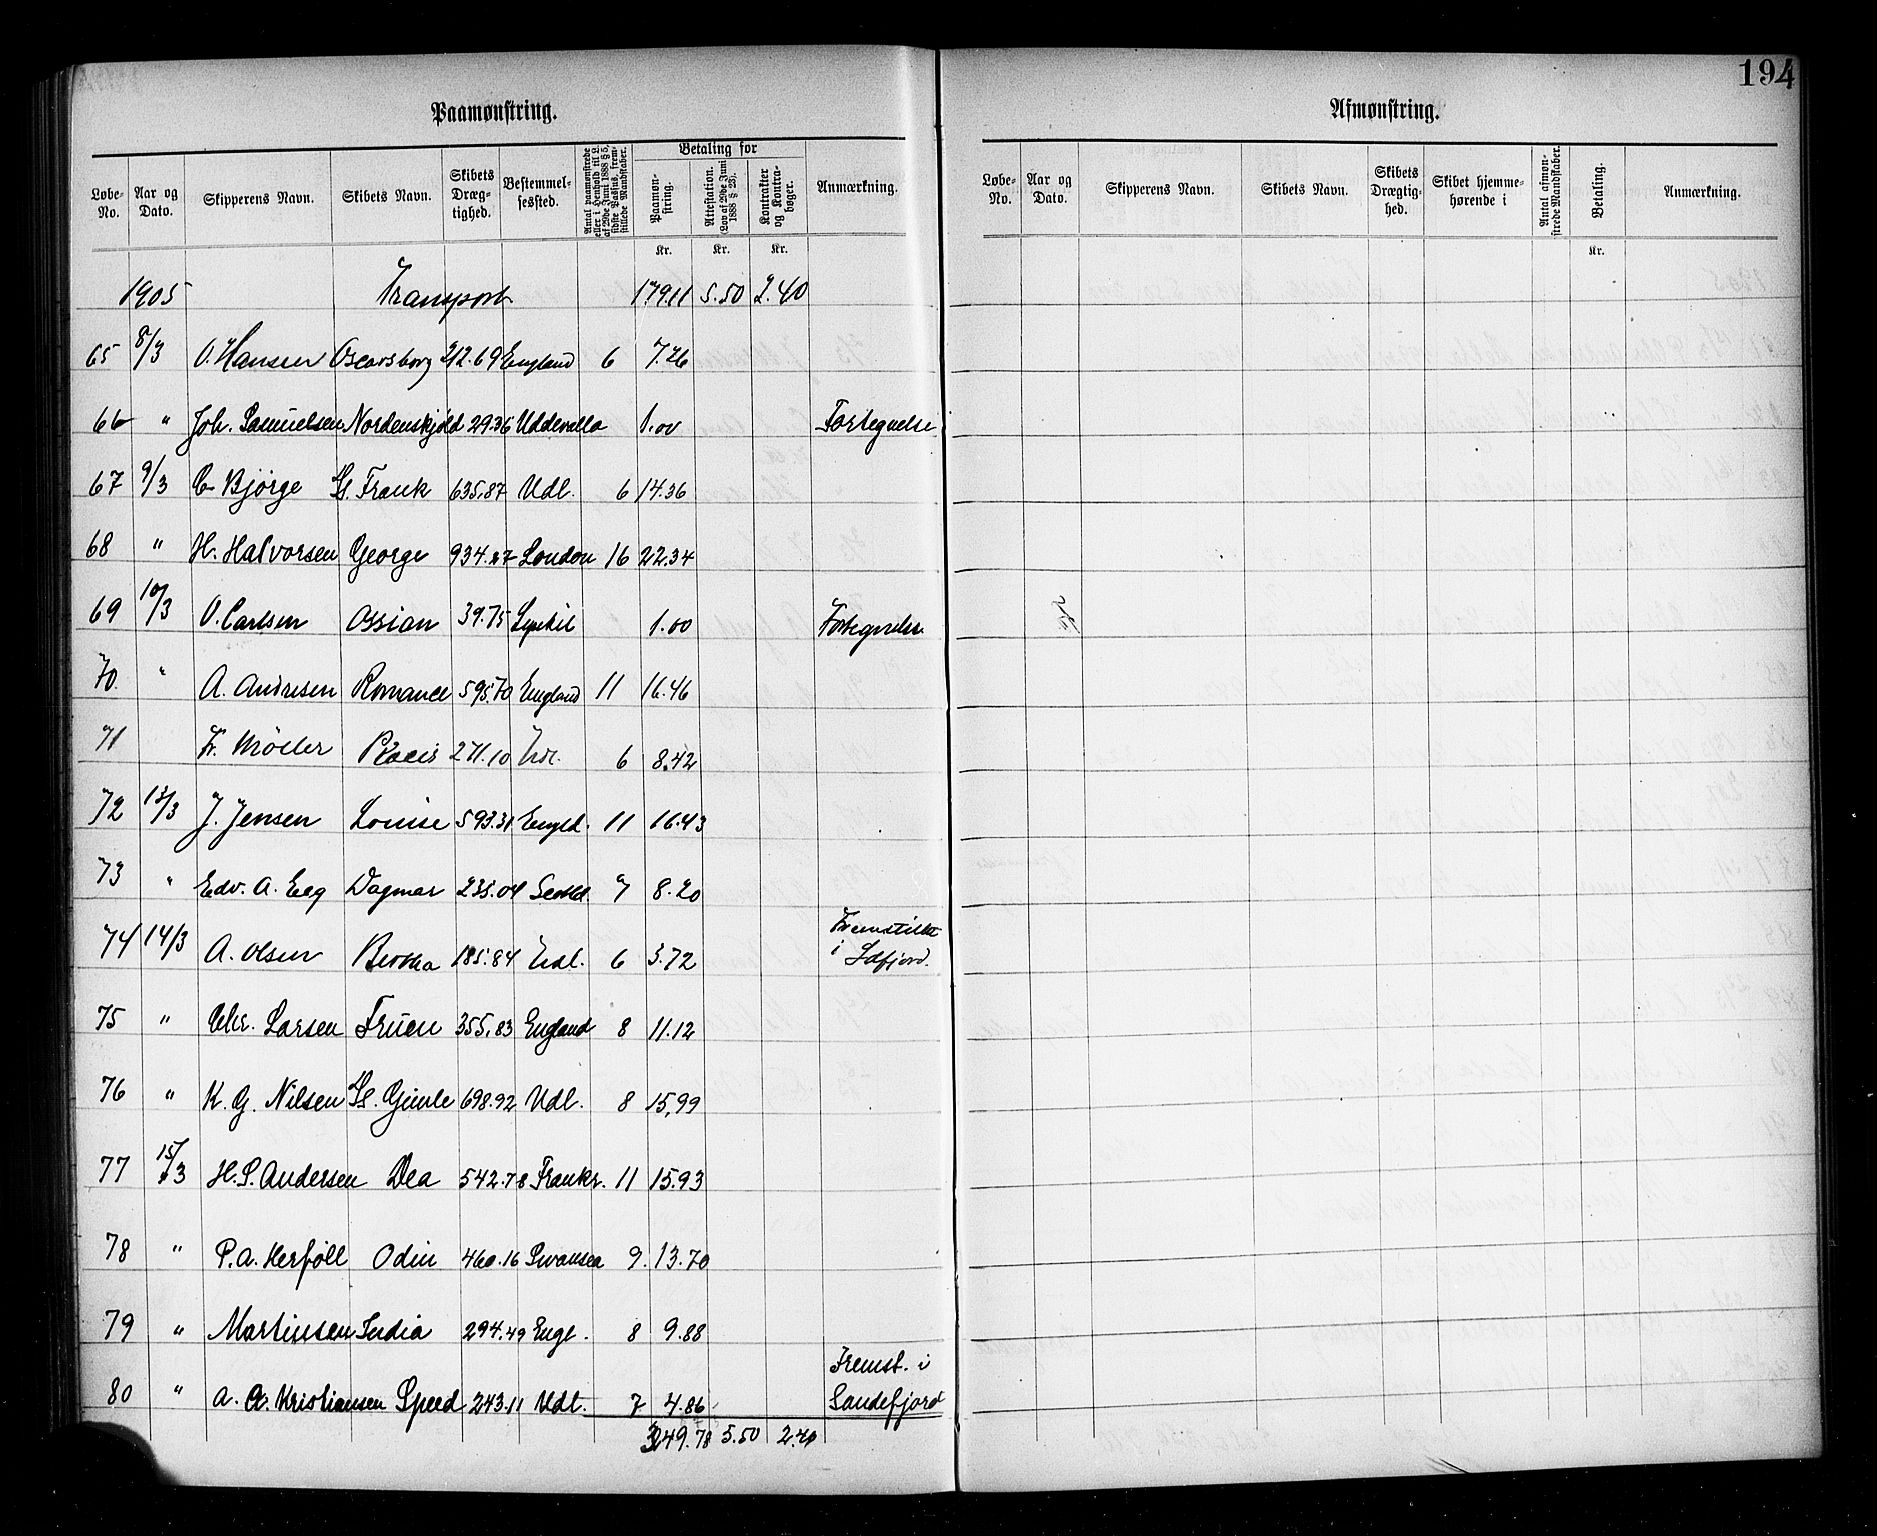 194
Paamønstring.
Løbe-No. Aar og Dato. Skipperens Navn. Skibets Navn. Skibets Dræg-tighed. Bestemmel-sessted. Antal paamønstrede eller i Henhold til L. af 29de Juni 1888 § 5, sidste Passus, frem-stillede Mandskaber. Betaling for Paamøn-string. Attestation. (Lov af 29de Juni 1888 § 23). Kontrakter og Kontra-bøger. Anmærkning.
Kr. Kr. Kr.
1905 Transport 179.11 5.50 2.40
65 8/3 O. Hansen Oscarsborg 212.69 England 6 7.26
66 " Joh. Samuelsen Nordenskjöld 29.36 Uddevalla 1.00 Fortegnelse
67 9/3 C. Bjørge Ds. Frank 635.87 Udl. 6 14.36
68 " H. Halvorsen George 934.27 London 16 22.34
69 10/3 O. Carlsen Ossian 39.75 Lysekil 1.00 Fortegnelse
70 " A. Andresen Romance 595.70 England 11 16.46
71 Fr. Möller 271.10 Udl. 6 8.42
72 13/3 J. Jensen Louise 593.31 Engld. 11 16.43
73 " Edv. A. Eeg Dagmar 235.04 Scotld. 7 8.20
74 14/3 A. Olsen Bertha 185.84 Udl. 6 3.72 Fremstillet i Sdfjord.
75 " Chr. Larsen Fruen 355.83 England 8 11.12
76 " K. G. Nilsen Ds. Gimle 698.92 Udl. 8 15,99
77 15/3 H. S. Andersen Dea 542.78 Frankr. 11 15.93
78 " P. A. Herføll Odin 460.16 Swansea 9. 13.70
79 " Martinsen India 294.49 Engl. 8 9.88
80 " A. A. Kristiansen Speed 243.11 Udl. 7 4.86 Fremst. i Sandefjord
349.78 5.50 2.40
Afmønstring.
Løbe-No. Aar og Dato. Skipperens Navn. Skibets Navn. Skibets Drægtig-hed. Skibet hjemme-hørende i Antal afmøn-strede Mandskaber. Betaling. Anmærkning.
Kr.